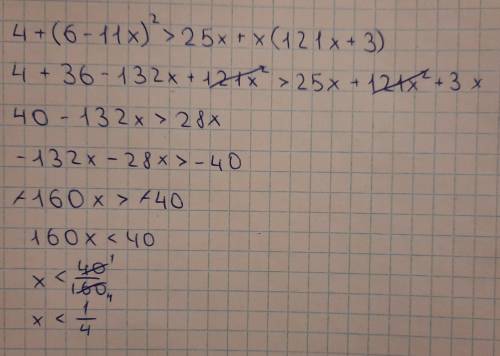 4+(6-11x)²>25x+x(121x+3)
4+36-132x+121x²>25x+121x²+3x
40-132x>28x
-132x-28x>-40
-160x>-40
160x<40
x<40/160 1 4
x<1/4